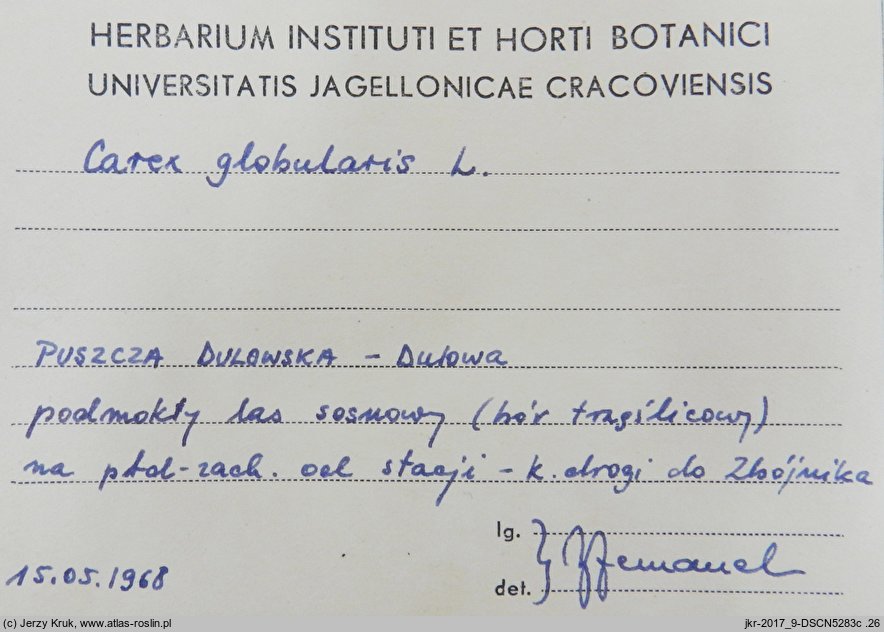 HERBARIUM INSTITUTI ET HORTI BOTANICI
UNIVERSITATIS JAGELLONICAE CRACOVIENSIS
Carex globularis L.
PUSZCZA DULOWSKA - Dulowa
podmokły las sosnowy (bór trzęślicowy)
na płd-zach. od stacji - k. drogi do Zbójnika
lg.
det.
15.05.1968
(c) Jerzy Kruk, www.atlas-roslin.pl
jkr-2017_9-DSCN5283c .26